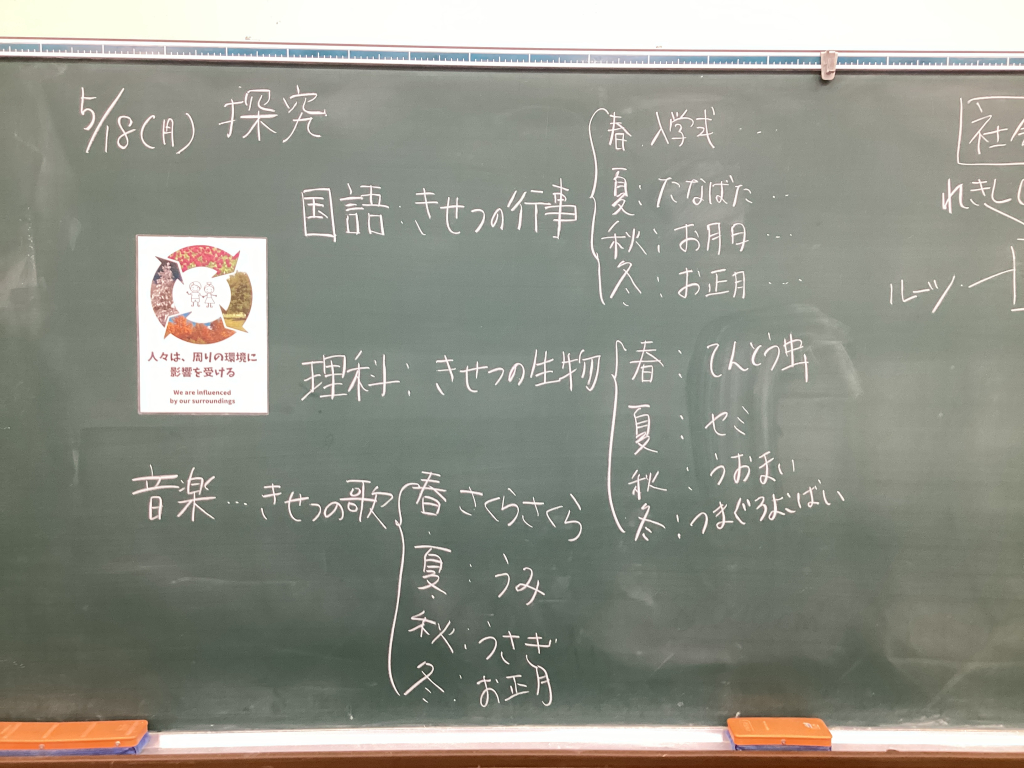 5/18(月) 探究
国語:きせつの行事
春 入学式 ‥‥
夏:たなばた ‥
秋:お月見 ‥
冬:お正月 ‥‥
人々は、周りの環境に
影響を受ける
We are influenced
by our surroundings
理科:きせつの生物
春:てんとう虫
夏:セミ
秋:うおまい
冬:つまぐろよこばい
音楽…きせつの歌
春 さくらさくら
夏:うみ
秋:うさぎ
冬:お正月
社会
れきし(
ルーツ